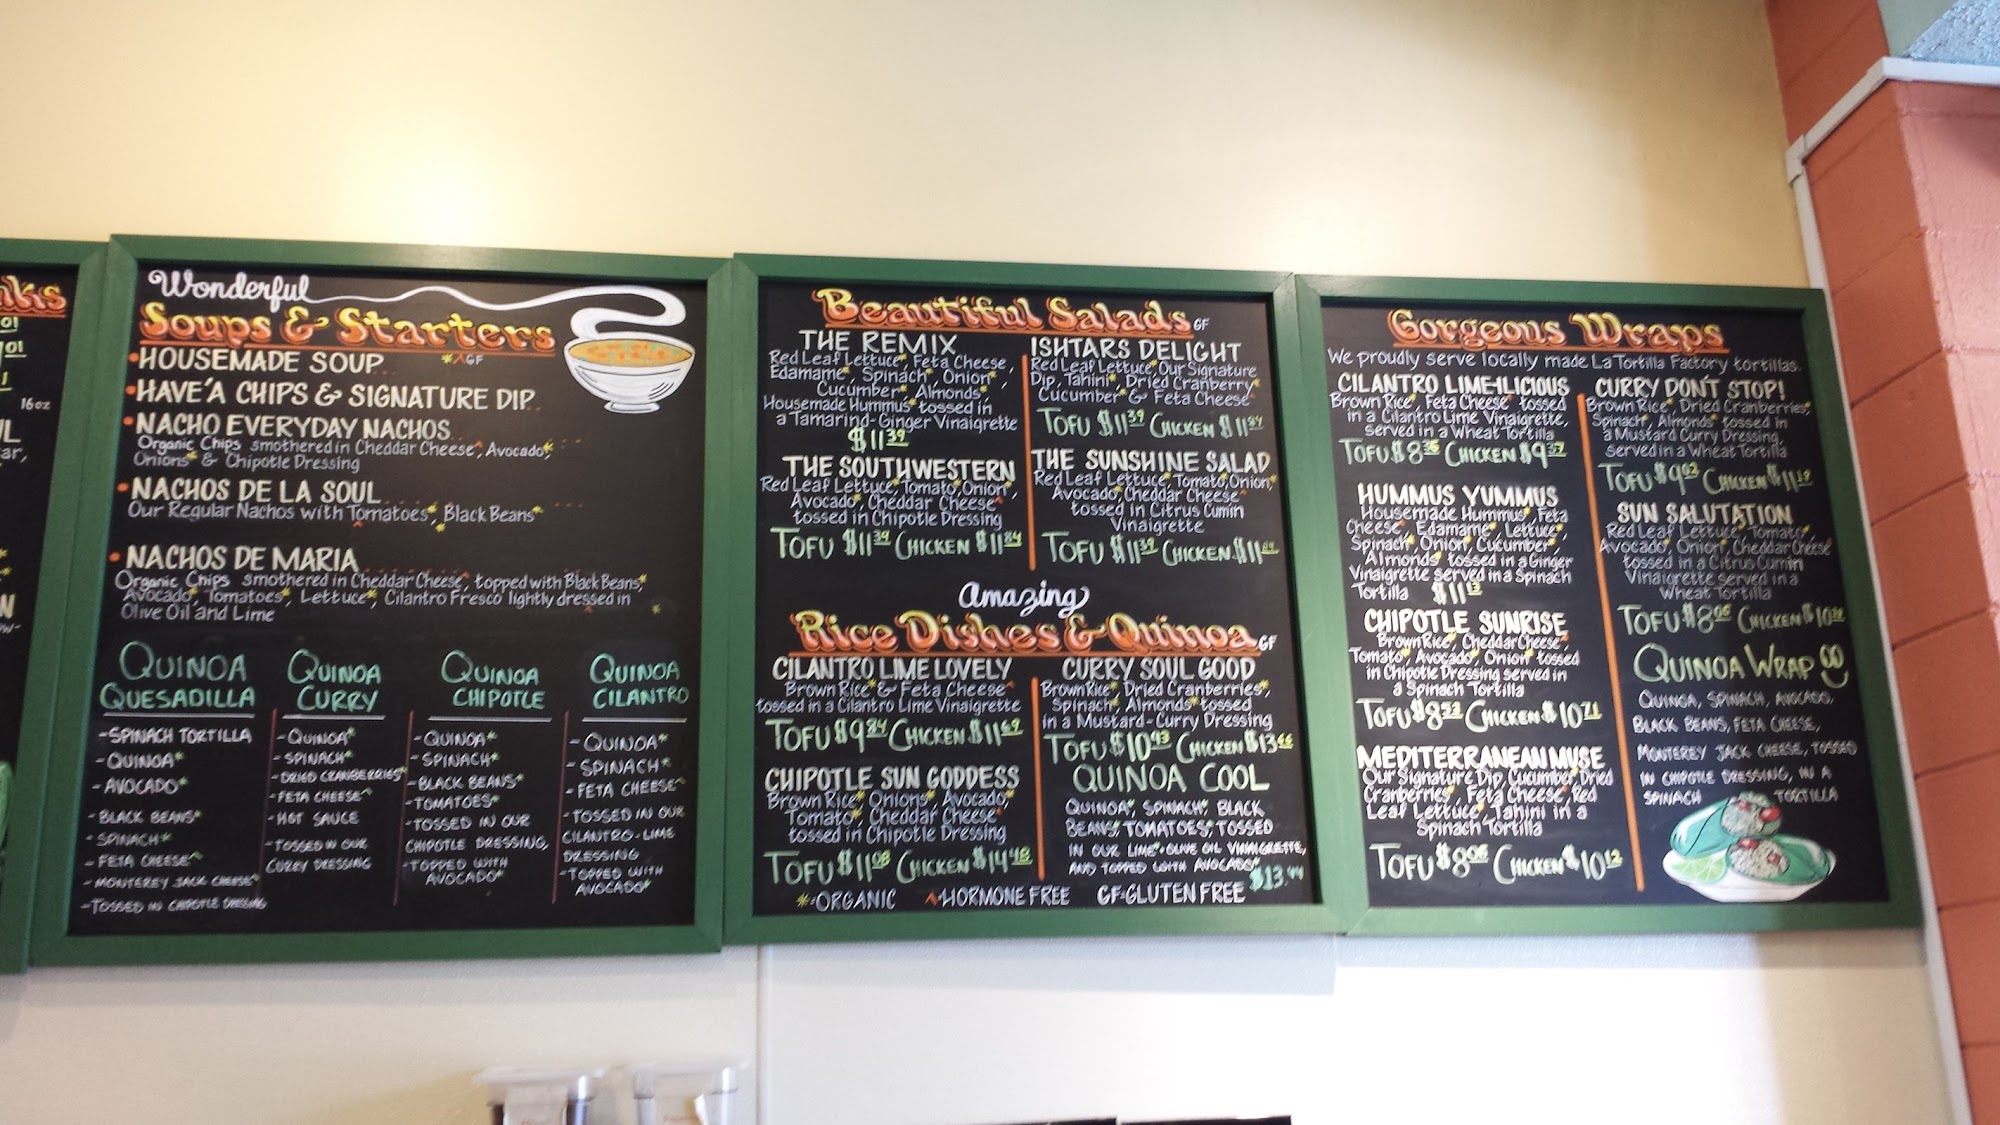 nks
01
01
16oz
Wonderful
Soups & Starters
•HOUSEMADE SOUP *^GF
•HAVE'A CHIPS & SIGNATURE DIP
•NACHO EVERYDAY NACHOS
Organic Chips smothered in Cheddar Cheese^, Avocado*,
Onions* & Chipotle Dressing
•NACHOS DE LA SOUL
Our Regular Nachos with Tomatoes*, Black Beans*
•NACHOS DE MARIA
Organic Chips smothered in Cheddar Cheese^, topped with Black Beans*,
Avocado*, Tomatoes*, Lettuce*, Cilantro Fresco lightly dressed in
Olive Oil and Lime
QUINOA
QUESADILLA
-SPINACH TORTILLA
-QUINOA*
-AVOCADO*
-BLACK BEANS*
-SPINACH*
-FETA CHEESE^
-MONTEREY JACK CHEESE^
-TOSSED IN CHIPOTLE DRESSING
QUINOA
CURRY
-QUINOA*
-SPINACH*
-DRIED CRANBERRIES*
-FETA CHEESE^
-HOT SAUCE
-TOSSED IN OUR
CURRY DRESSING
QUINOA
CHIPOTLE
-QUINOA*
-SPINACH*
-BLACK BEANS*
-TOMATOES*
-TOSSED IN OUR
CHIPOTLE DRESSING,
-TOPPED WITH
AVOCADO*
QUINOA
CILANTRO
-QUINOA*
-SPINACH*
-FETA CHEESE^
-TOSSED IN OUR
CILANTRO-LIME
DRESSING
-TOPPED WITH
AVOCADO*
Beautiful Salads GF
THE REMIX
Red Leaf Lettuce*, Feta Cheese,
Edamame*, Spinach*, Onion*,
Cucumber*, Almonds*
Housemade Hummus* tossed in
a Tamarind-Ginger Vinaigrette
$11.39
THE SOUTHWESTERN
Red Leaf Lettuce*, Tomato*, Onion*,
Avocado*, Cheddar Cheese^
tossed in Chipotle Dressing
TOFU $11.39 CHICKEN $11.84
ISHTARS DELIGHT
Red Leaf Lettuce*, Our Signature
Dip, Tahini*, Dried Cranberry*
Cucumber* & Feta Cheese^
TOFU $11.39 CHICKEN $11.84
THE SUNSHINE SALAD
Red Leaf Lettuce*, Tomato*, Onion*,
Avocado*, Cheddar Cheese^
tossed in Citrus Cumin
Vinaigrette
TOFU $11.39 CHICKEN $11.84
Amazing
Rice Dishes & Quinoa GF
CILANTRO LIME LOVELY
Brown Rice* & Feta Cheese^
tossed in a Cilantro Lime Vinaigrette
TOFU $9.84 CHICKEN $11.69
CHIPOTLE SUN GODDESS
Brown Rice*, Onions*, Avocado*,
Tomato*, Cheddar Cheese^
tossed in Chipotle Dressing
TOFU $11.08 CHICKEN $14.48
CURRY SOUL GOOD
Brown Rice*, Dried Cranberries*,
Spinach*, Almonds* tossed
in a Mustard-Curry Dressing
TOFU $10.43 CHICKEN $13.66
QUINOA COOL
QUINOA*, SPINACH*, BLACK
BEANS*, TOMATOES*, TOSSED
IN OUR LIME*+OLIVE OIL VINAIGRETTE,
AND TOPPED WITH AVOCADO*
$13.44
*=ORGANIC ^=HORMONE FREE GF=GLUTEN FREE
Gorgeous Wraps
We proudly serve locally made La Tortilla Factory tortillas.
CILANTRO LIME-ILICIOUS
Brown Rice*, Feta Cheese^ tossed
in a Cilantro Lime Vinaigrette,
served in a Wheat Tortilla
TOFU $8.36 CHICKEN $9.37
HUMMUS YUMMUS
Housemade Hummus*, Feta
Cheese^, Edamame*, Lettuce*,
Spinach*, Onion*, Cucumber*,
Almonds* tossed in a Ginger
Vinaigrette served in a Spinach
Tortilla $11.13
CHIPOTLE SUNRISE
Brown Rice*, Cheddar Cheese^,
Tomato*, Avocado*, Onion* tossed
in Chipotle Dressing served in
a Spinach Tortilla
TOFU $8.53 CHICKEN $10.71
MEDITERRANEAN MUSE
Our Signature Dip, Cucumber*, Dried
Cranberries*, Feta Cheese^, Red
Leaf Lettuce*, Tahini in a
Spinach Tortilla
TOFU $8.06 CHICKEN $10.12
CURRY DON'T STOP!
Brown Rice*, Dried Cranberries*,
Spinach*, Almonds* tossed in
a Mustard Curry Dressing,
served in a Wheat Tortilla
TOFU $9.02 CHICKEN $11.19
SUN SALUTATION
Red Leaf Lettuce*, Tomato*,
Avocado*, Onion*, Cheddar Cheese^
tossed in a Citrus Cumin
Vinaigrette served in a
Wheat Tortilla
TOFU $8.06 CHICKEN $10
QUINOA WRAP
QUINOA, SPINACH, AVOCADO,
BLACK BEANS, FETA CHEESE,
MONTEREY JACK CHEESE, TOSSED
IN CHIPOTLE DRESSING, IN A
SPINACH TORTILLA